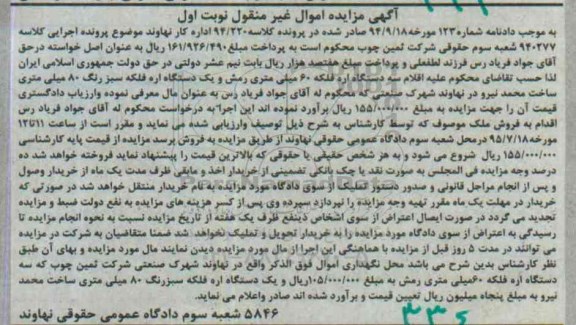 آگهی مزایده اموال غیر منقول نوبت اول
به موجب دادنامه شماره۱۲۳ مورخه۹۴/۹/۱۸ صادر شده در پرونده کلاسه۹۴/۲۲۰ اداره کار نهاوند موضوع پرونده اجرایی کلاسه
۹۴۰۲۷۷ شعبه سوم حقوقی شرکت ثمین چوب محکوم است به پرداخت مبلغ۱۶۱/۹۲۶/۴۹۰ ریال به عنوان اصل خواسته درحق
آقای جواد فریاد رس فرزند لطفعلی و پرداخت مبلغ هفتصد هزار ریال بابت نیم عشر دولتی در حق دولت جمهوری اسلامی ایران
لذا حسب تقاضای محکوم علیه اقلام سه دستگاه اره فلکه ۶۰ میلی متری رمش و یک دستگاه اره فلکه سبز رنگ ۸۰ میلی متری
ساخت محمد نیرو در نهاوند شهرک صنعتی به محکوم له آقای جواد فریاد رس به عنوان مال معرفی نموده وارزیاب دادگستری
قیمت آن را جهت مزایده به مبلغ ۱۵۵/۰۰۰/۰۰۰ ریال برآورد نموده اند این اجرا به درخواست محکوم له آقای جواد فریاد رس
اقدام به فروش ملک موصوف که توسط کارشناس به شرح ذیل توصیف وارزیابی شده می نماید و مقرر است از ساعت ۱۱تا۱۲
مورخه۹۵/۷/۱۸ درمحل شعبه سوم دادگاه عمومی حقوقی نهاوند از طریق مزایده به فروش برسد مزایده از قیمت پایه کارشناسی
۱۵۵/۰۰۰/۰۰۰ ریال شروع می شود و به هر شخص حقیقی یا حقوقی که بالاترین قیمت را پیشنهاد نماید فروخته خواهد شد ده
درصد وجه مزایده فی المجلس به صورت نقد یا چک بانکی تضمینی از خریدار اخذ و مابقی ظرف مدت یک ماه از خریدار وصول
و پس از انجام مراحل قانونی و صدور دستور تملیک از سوی دادگاه مورد مزایده به نام خریدار منتقل خواهد شد در صورتی که
خریدار در مهلت یک ماه مقرر تهیه وجه مزایده را نپردازد سپرده وی پس از کسر هزینه های مزایده به نفع دولت ضبط و مزایده
تجدید می گردد در صورت ایصال اعتراض از سوی اشخاص ذینفع ظرف یک هفته از تاریخ مزایده نسبت به نحوه انجام مزایده تا
رسیدگی به اعتراض از سوی دادگاه مورد مزایده را به خریدار تحویل و تملیک نخواهد شد ضمنا متقاضیان به شرکت در مزایده
می توانند در مدت ۵ روز قبل از مزایده با هماهنگی این اجرا از مال مورد مزایده دیدن نمایند مال مورد مزایده و بهای آن طبق
نظر کارشناس بدین شرح می باشد محل نگهداری اموال فوق الذکر واقع در نهاوند شهرک صنعتی شرکت ثمین چوب که سه
دستگاه اره فلکه ۶۰میلی متری رمش به مبلغ ۱۰۵/۰۰۰/۰۰۰ریال و یک دستگاه اره فلکه سبزرنگ ۸۰ میلی متری ساخت محمد
نیرو به مبلغ پنجاه میلیون ریال تعیین قیمت و برآورد شده اند صادر واعلام می نماید.
۵۸۴۶ شعبه سوم دادگاه عمومی حقوقی نهاوند
۳۳۶